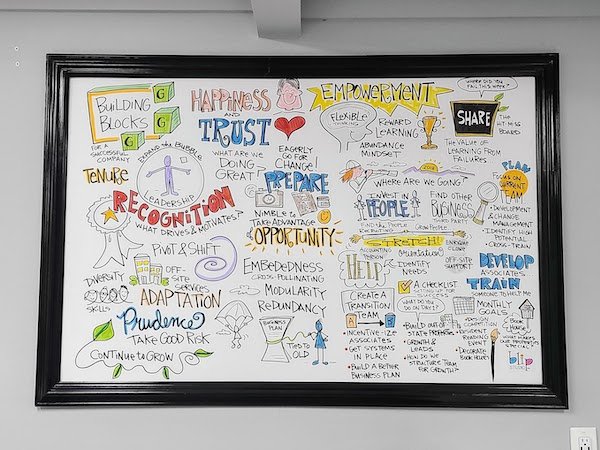 BUILDING
BLOCKS
G
G
G
FOR A
SUCCESSFUL
COMPANY
HAPPINESS
AND
TRUST
WHAT ARE WE
DOING
GREAT?
EAGERLY
GO FOR
CHANGE!
EMPOWERMENT
FLEXIBLE
REWARD
LEARNING
ABUNDANCE
MINDSET
WHERE DID YOU
FAIL THIS WEEK?
SHARE
THE
HIT-MISS
BOARD
THE VALUE OF
LEARNING FROM
FAILURES
TENURE
EXPAND THE BUBBLE
LEADERSHIP
RECOGNITION
WHAT DRIVES & MOTIVATES?
PIVOT & SHIFT
PREPARE
NIMBLE TO
TAKE ADVANTAGE
OF
OPPORTUNITY
WHERE ARE WE GOING?
INVEST IN
PEOPLE
FIND THE PEOPLE
RECRUITING
GROW PEOPLE
FIND OTHER
BUSINESS
THIRD PARTY
PLAN
FOCUS ON
CURRENT
TEAM
• DEVELOPMENT
& CHANGE
MANAGEMENT
• IDENTIFY HIGH
POTENTIAL
• CROSS-TRAIN
STRETCH!
HELP
IDENTIFY
NEEDS
OFF-SITE
SUPPORT
DEVELOP
ASSOCIATES
TRAIN
SOMEONE TO HELP ME
DIVERSITY
SKILLS
OFF-
SITE
SERVICES
ADAPTATION
EMBEDEDNESS
CROSS-POLLINATING
MODULARITY
REDUNDANCY
Prudence
TAKE GOOD RISK
CONTINUE TO GROW
BUSINESS
PLAN
TIED TO
OLD
CREATE A
TRANSITION
TEAM
• INCENTIVE-IZE
ASSOCIATES
• GET SYSTEMS
IN PLACE
• BUILD A BETTER
BUSINESS PLAN
A CHECKLIST
SETTING UP FOR
SUCCESS
WHAT DO YOU
DO ON DAY 1?
• BUILD OUT OF
STATE PRESENCE
• GROWTH &
LEADS
• HOW DO WE
STRUCTURE TEAM
FOR GROWTH?
MONTHLY
GOALS
• DESIGN
COMPETITION
• RESIDENT
READING
EVENT
• DECORATE
BOOK HOUSES
BOOK
HOUSE